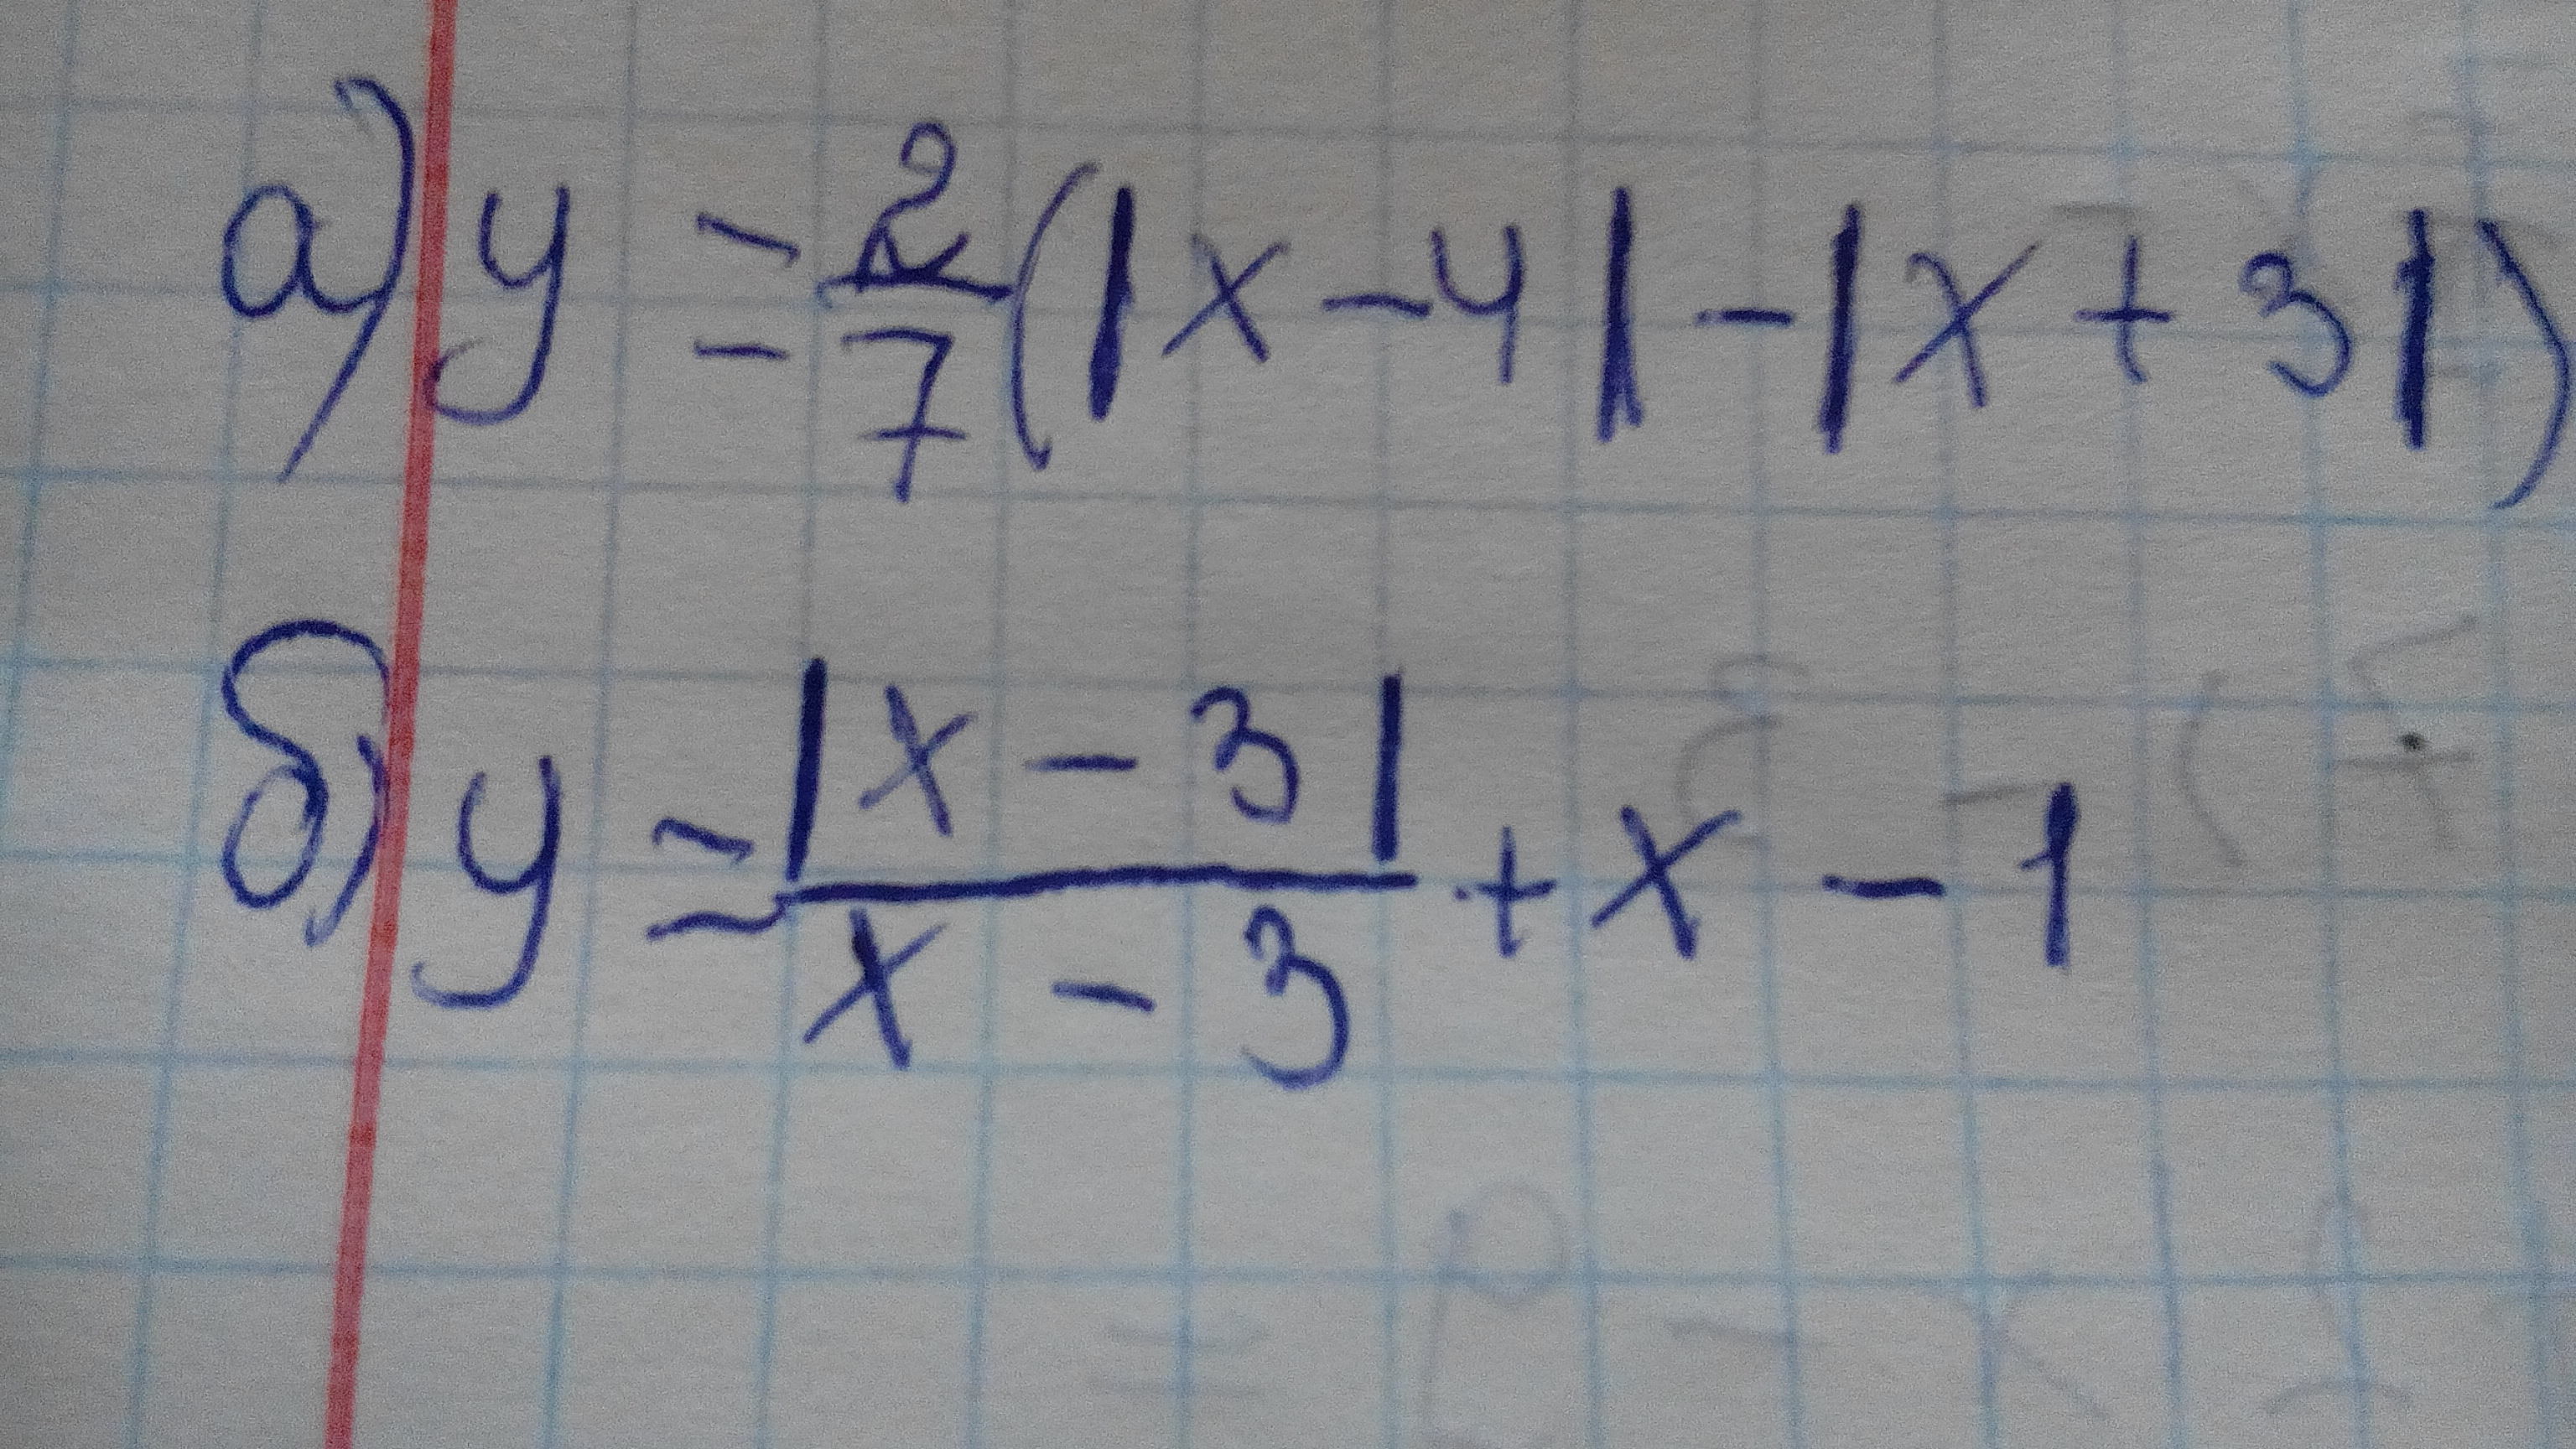 а) y = 2/7 (|x - 4| - |x + 3|)
б) y = |x - 3| / (x - 3) + x - 1